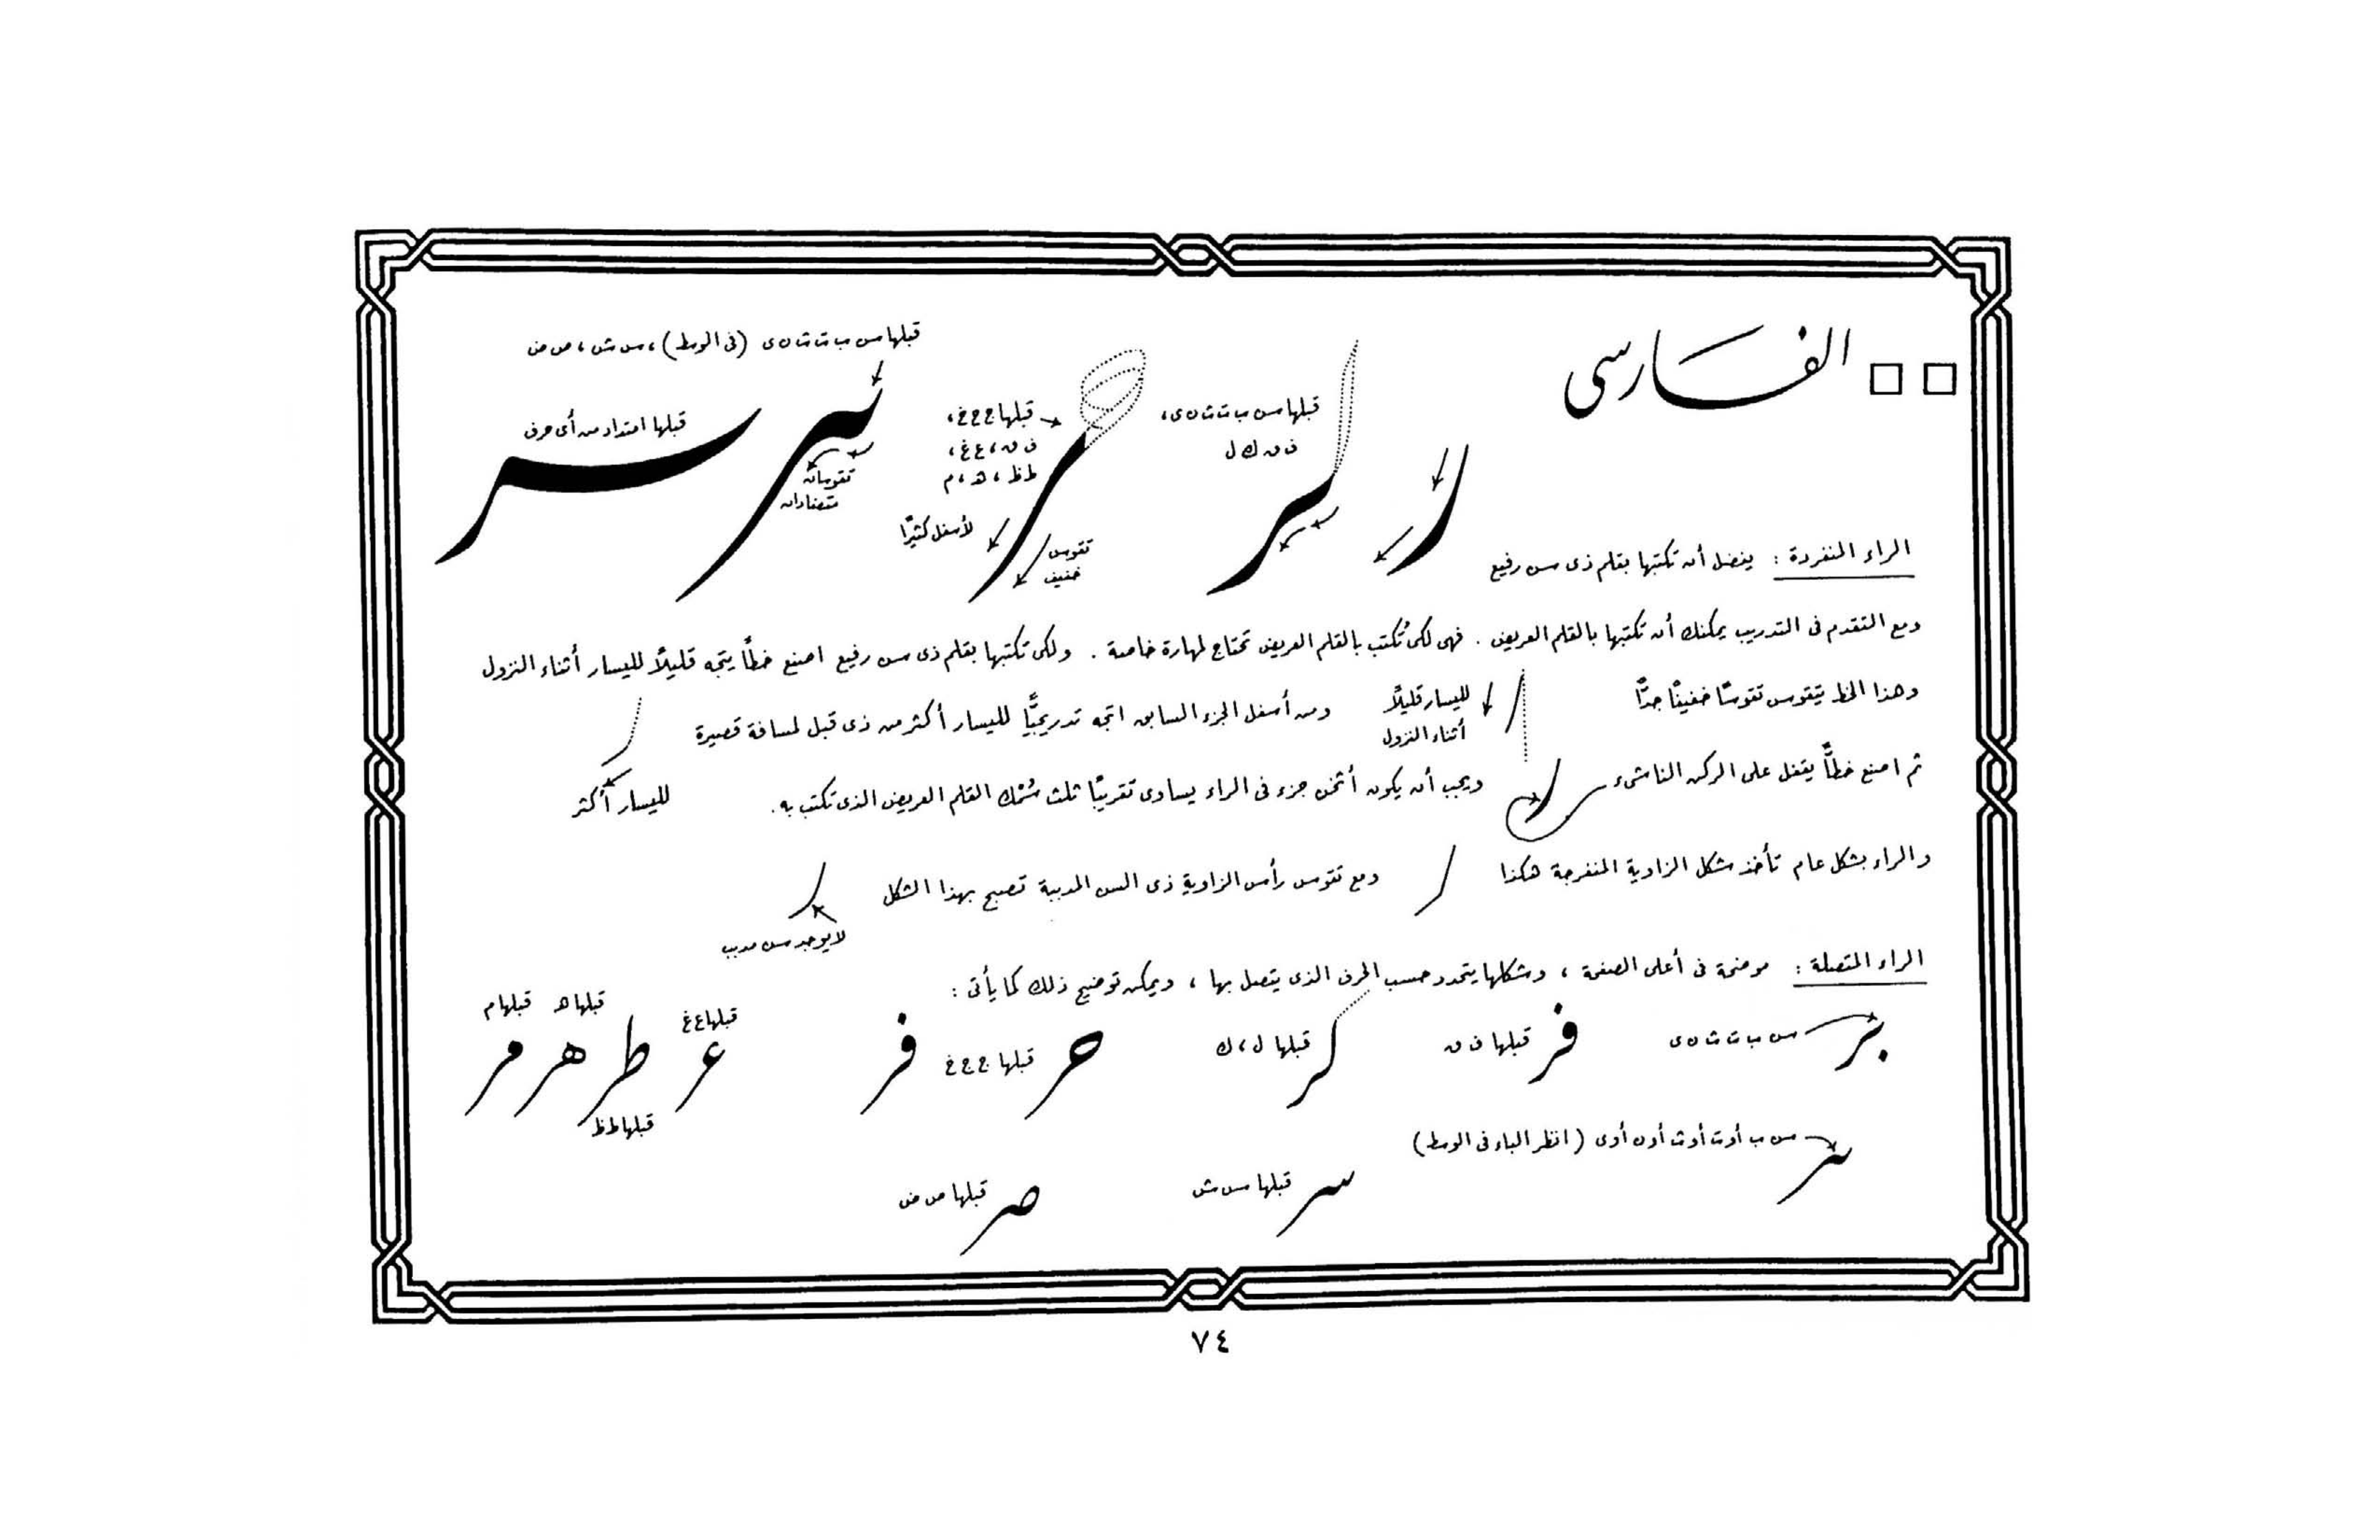 الفارسى
قبلها س ب ت ث ن ى (فى الوسط) ، س ش ، ص ض
قبلها امتداد من أى حرف
قبلها س ب ت ث ن ى ،
ف ق ك ل
قبلها ج ح خ ،
ف ق ، ع غ ،
ط ظ ، ه ، م
تقوسان
متضادان
لأسفل كثيرًا
تقوس
خفيف
الراء المنفردة : يفضل أن تكتبها بقلم ذى سن رفيع
ومع التقدم فى التدريب يمكنك أن تكتبها بالقلم العريض . فهى لكى تُكتب بالقلم العريض تحتاج لمهارة خاصة . ولكى تكتبها بقلم ذى سن رفيع اصنع خطاً يتجه قليلاً لليسار أثناء النزول
وهذا الخط يتقوس تقوسًا خفيفًا جدًّا
لليسار قليلاً
أثناء النزول
ومن أسفل الجزء السابق اتجه تدريجيًّا لليسار أكثر من ذى قبل لمسافة قصيرة
لليسار أكثر
ثم اصنع خطاًّ يقفل على الركن الناشىء
ويجب أن يكون أثخن جزء فى الراء يساوى تقريبًا ثلث سُمْك القلم العريض الذى تكتب به .
والراء بشكل عام تأخذ شكل الزاوية المنفرجة هكذا
ومع تقوس رأس الزاوية ذى السن المدببة تصبح بهذا الشكل
لا يوجد سن مدبب
الراء المتصلة : موضحة فى أعلى الصفحة ، وشكلها يتحدد حسب الحرف الذى يتصل بها ، ويمكن توضيح ذلك كما يأتى :
بر س ب ت ث ن ى
فر قبلها ف ق
كر قبلها ل ، ك
حر قبلها ج ح خ
فر
عر قبلها ع غ
طر قبلها ط ظ
هر قبلها ه
مر قبلها م
س ب أو ت أو ث أو ن أو ى (انظر الباء فى الوسط)
سر قبلها س ش
صر قبلها ص ض
٧٤